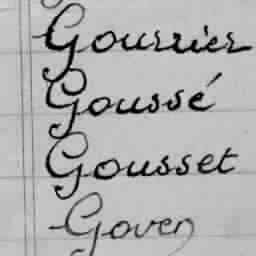 Gourrier
Goussé
Gousset
Goven